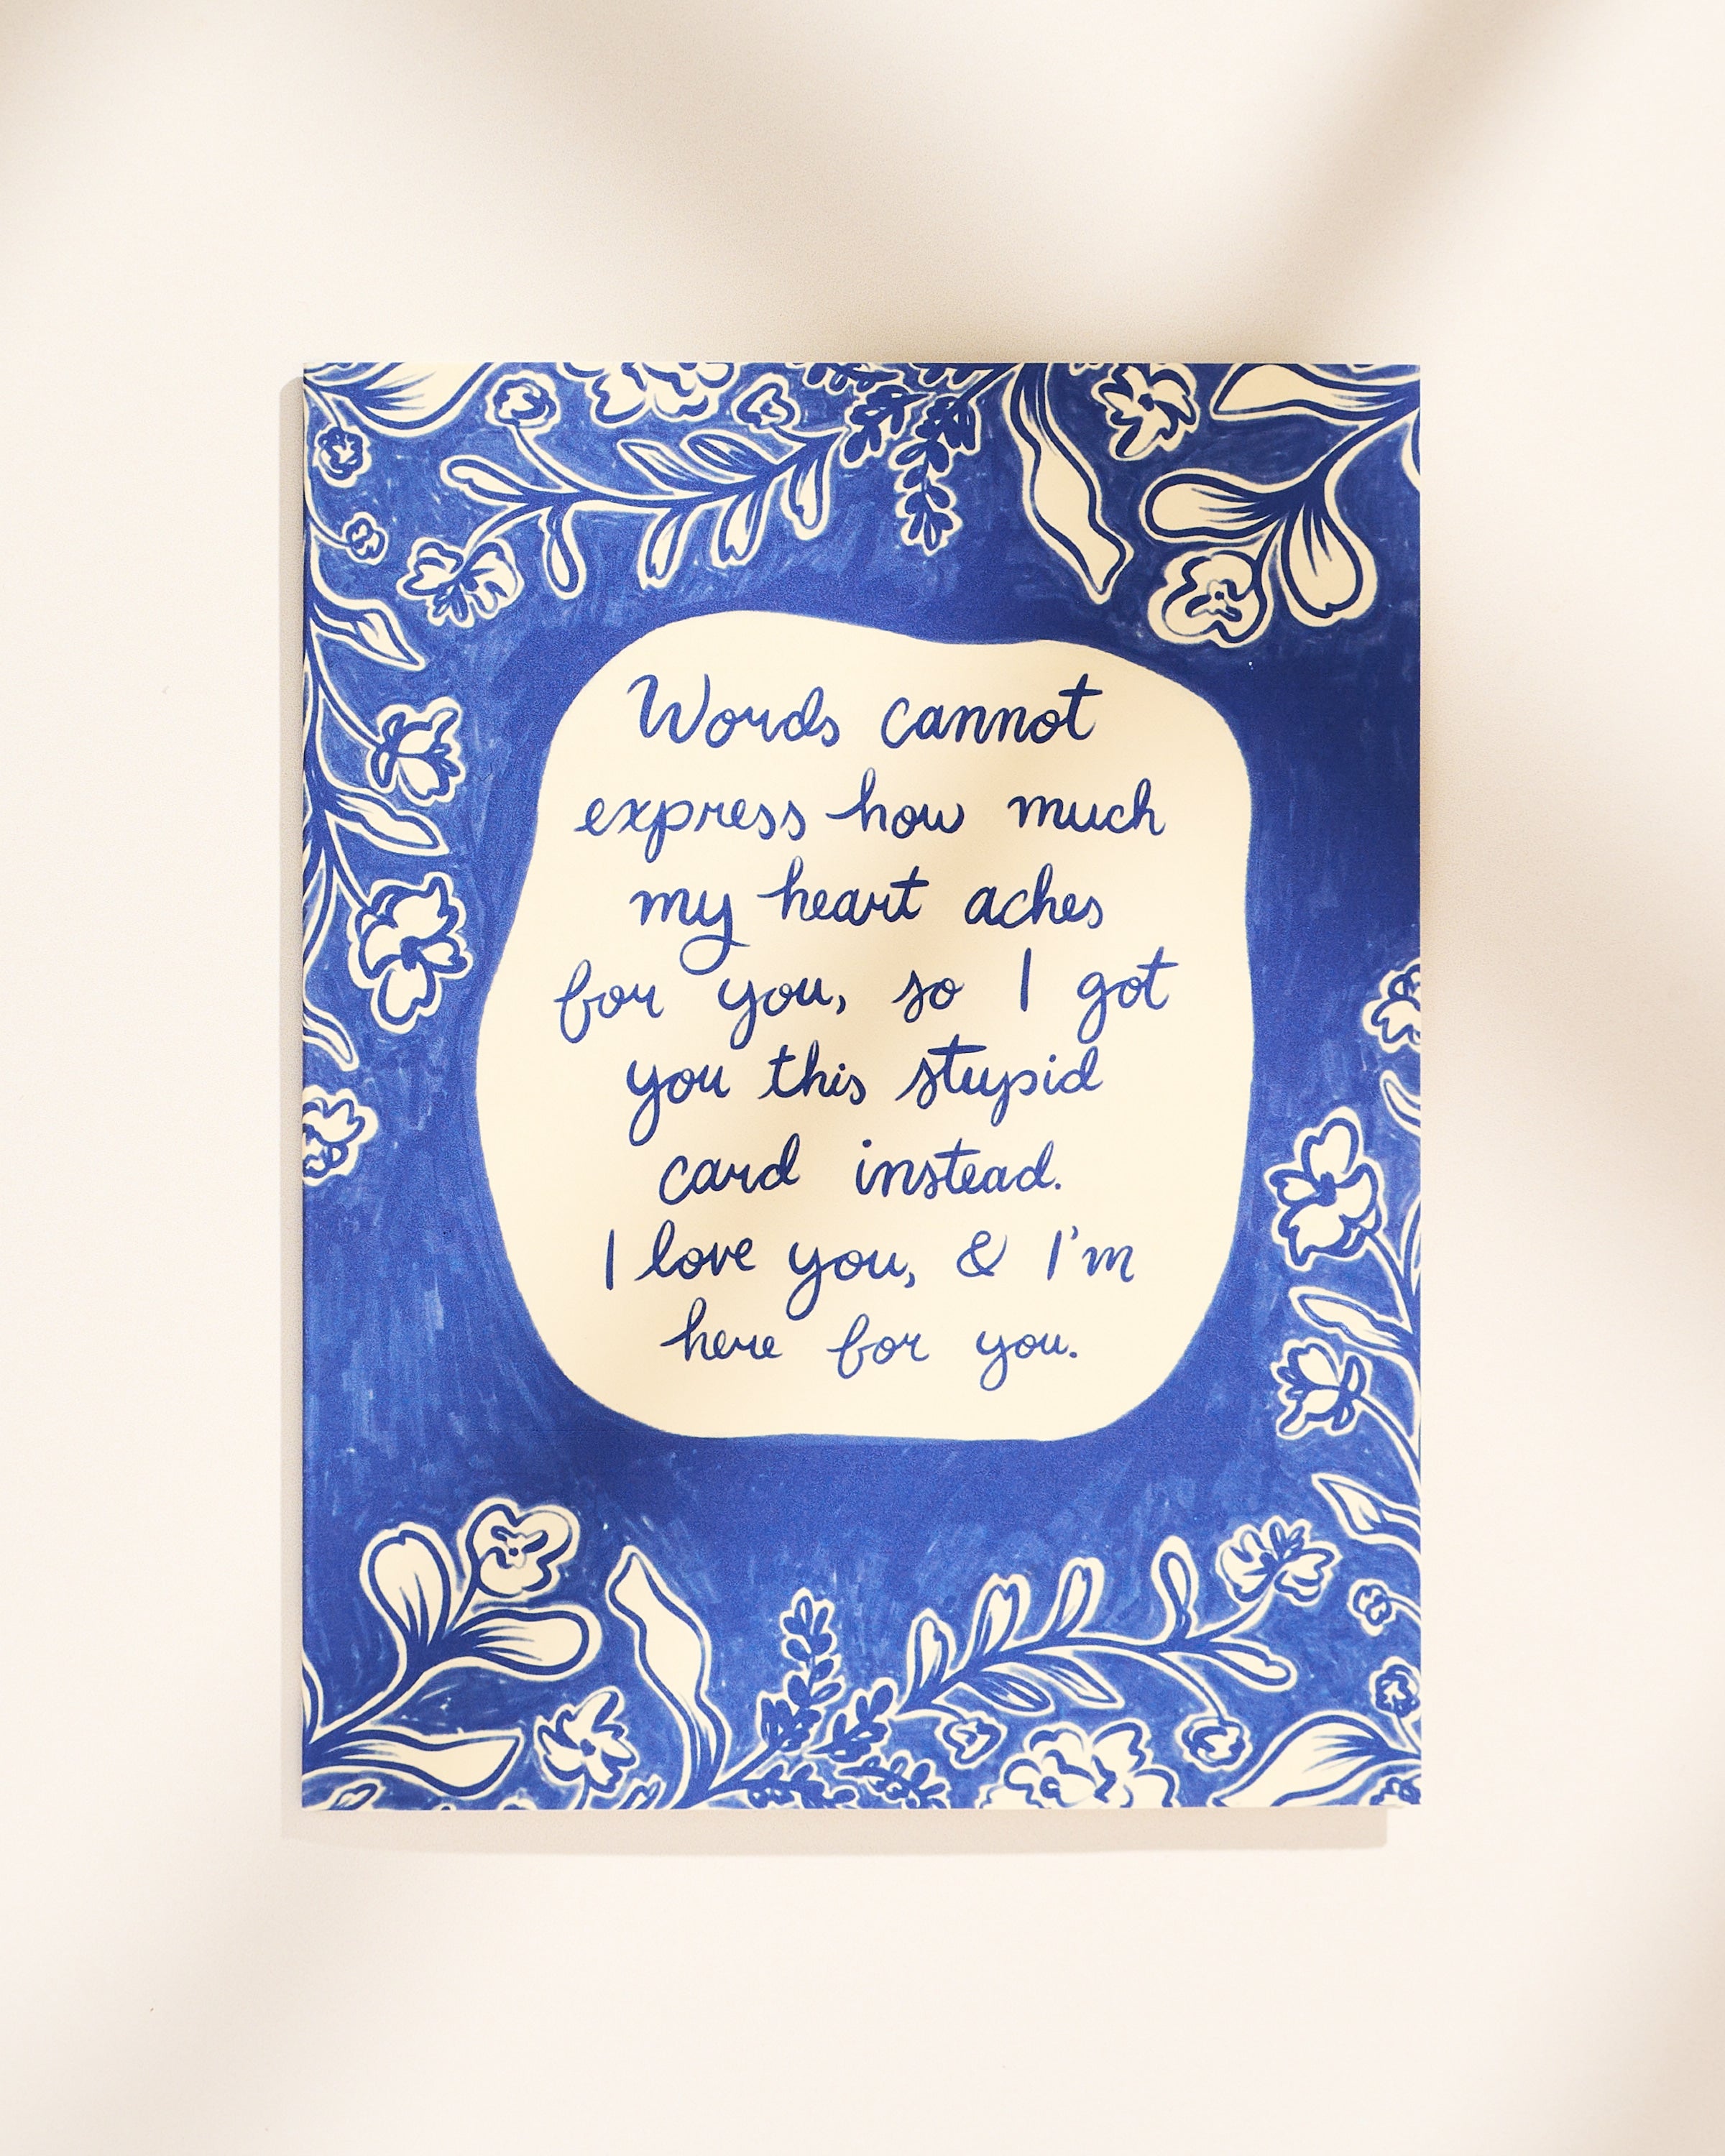 Words cannot
express how much
my heart aches
for you, so I got
you this stupid
card instead.
I love you, & I'm
here for you.